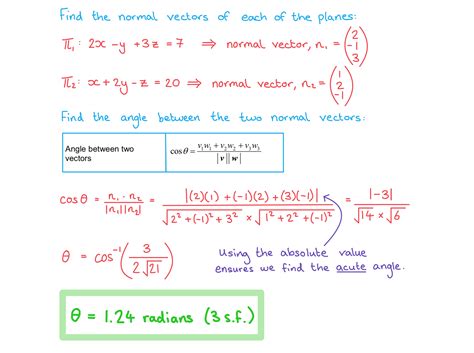 Find the normal vectors of each of the planes:
Π₁: 2x - y + 3z = 7 ⇒ normal vector, n₁ = (2 -1 3)
Π₂: x + 2y - z = 20 ⇒ normal vector, n₂ = (1 2 -1)
Find the angle between the two normal vectors:
Angle between two vectors cosθ = (v₁w₁ + v₂w₂ + v₃w₃) / (|v||w|)
cosθ = (n₁ · n₂) / (|n₁||n₂|) = |(2)(1) + (-1)(2) + (3)(-1)| / (√(2² + (-1)² + 3²) × √(1² + 2² + (-1)²)) = |-3| / (√14 × √6)
θ = cos⁻¹(3 / (2√21))
Using the absolute value
ensures we find the acute angle.
θ = 1.24 radians (3 s.f.)